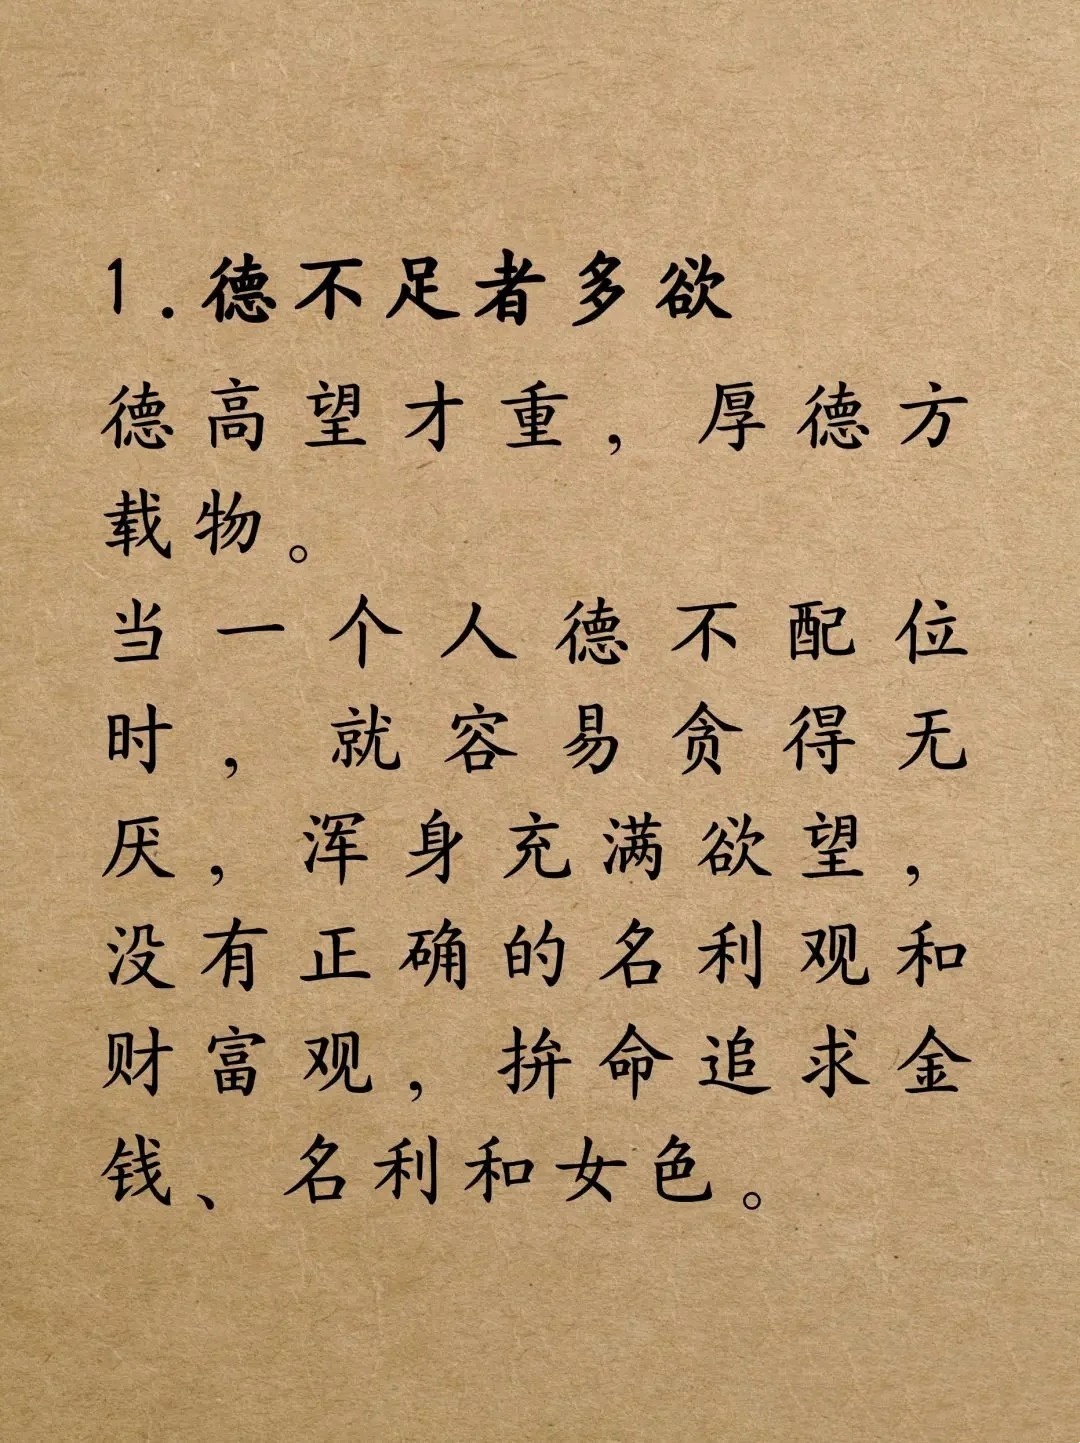 1.德不足者多欲
德高望才重，厚德方
载物。
当一个人德不配位
时，就容易贪得无
厌，浑身充满欲望，
没有正确的名利观和
财富观，拚命追求金
钱、名利和女色。